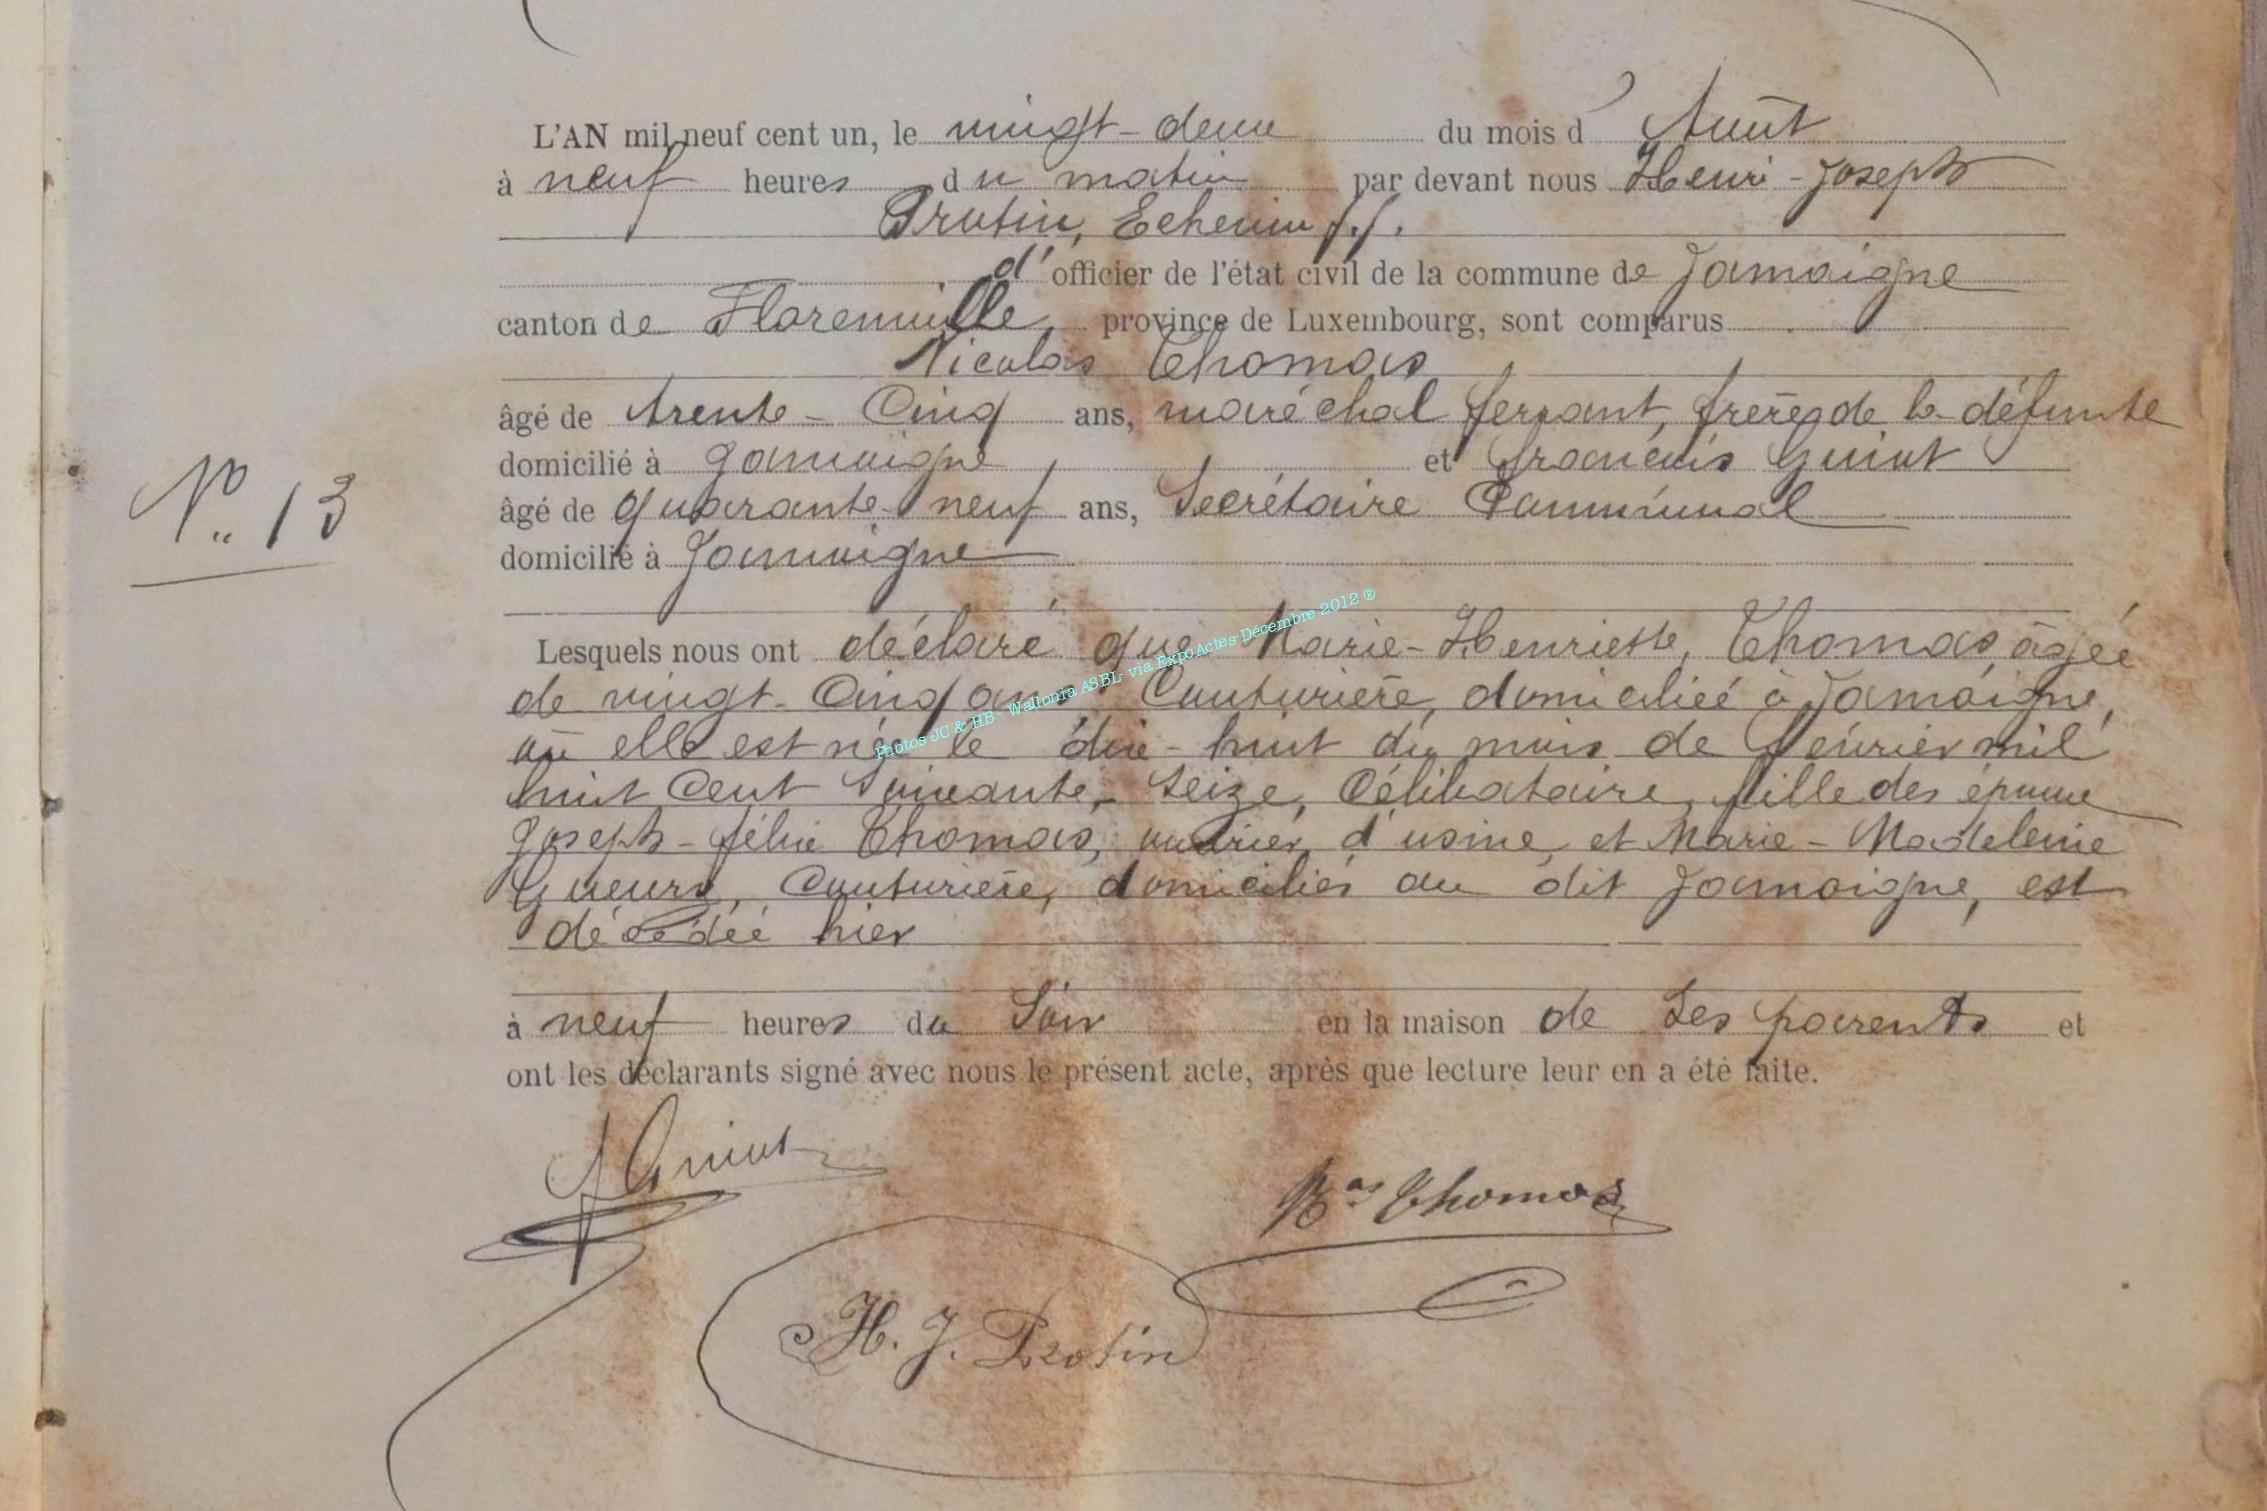 L'AN mil neuf cent un, le vingt-deux du mois d' Août
à neuf heures du matin par devant nous Henri-Joseph
Protin, Echevin f.f.
d'officier de l'état civil de la commune de Jamoigne
canton de Florenville, province de Luxembourg, sont comparus
Nicolas Thomas
âgé de trente-Cinq ans, maréchal ferrant, frère de la défunte
domicilié à Jamoigne et François Guiot
Nº 13
âgé de quarante-neuf ans, Secrétaire Communal
domicilié à Jamoigne
Lesquels nous ont déclaré que Marie-Henriette, Thomas, âgée
de vingt-Cinq ans, Couturière, domiciliée à Jamoigne,
où elle est née le dix-huit du mois de février mil
huit Cent Soixante-Seize, Célibataire, fille des époux
Joseph-félix Thomas, ouvrier d'usine, et Marie-Madeleine
Couturière, domiciliés au dit Jamoigne, est
décédée hier
à neuf heures du Soir en la maison de Ses parents et
ont les déclarants signé avec nous le présent acte, après que lecture leur en a été faite.
Guiot
Nas Thomas
H. J. Protin
Photos JC & HB - Wallonia ASBL via ExpoActes-Décembre 2012 ®